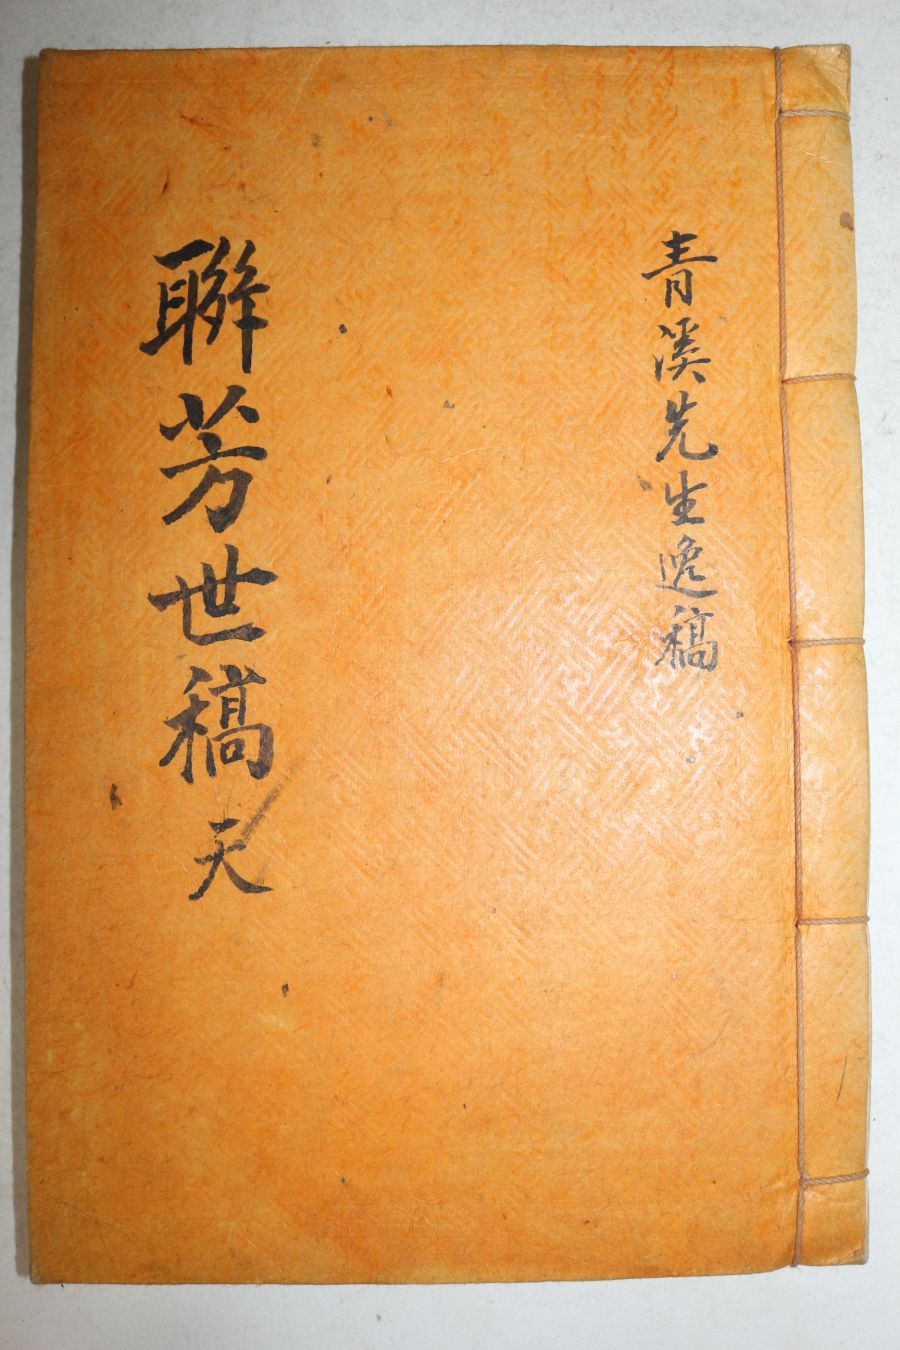 青溪先生逸稿
聯芳世稿 天